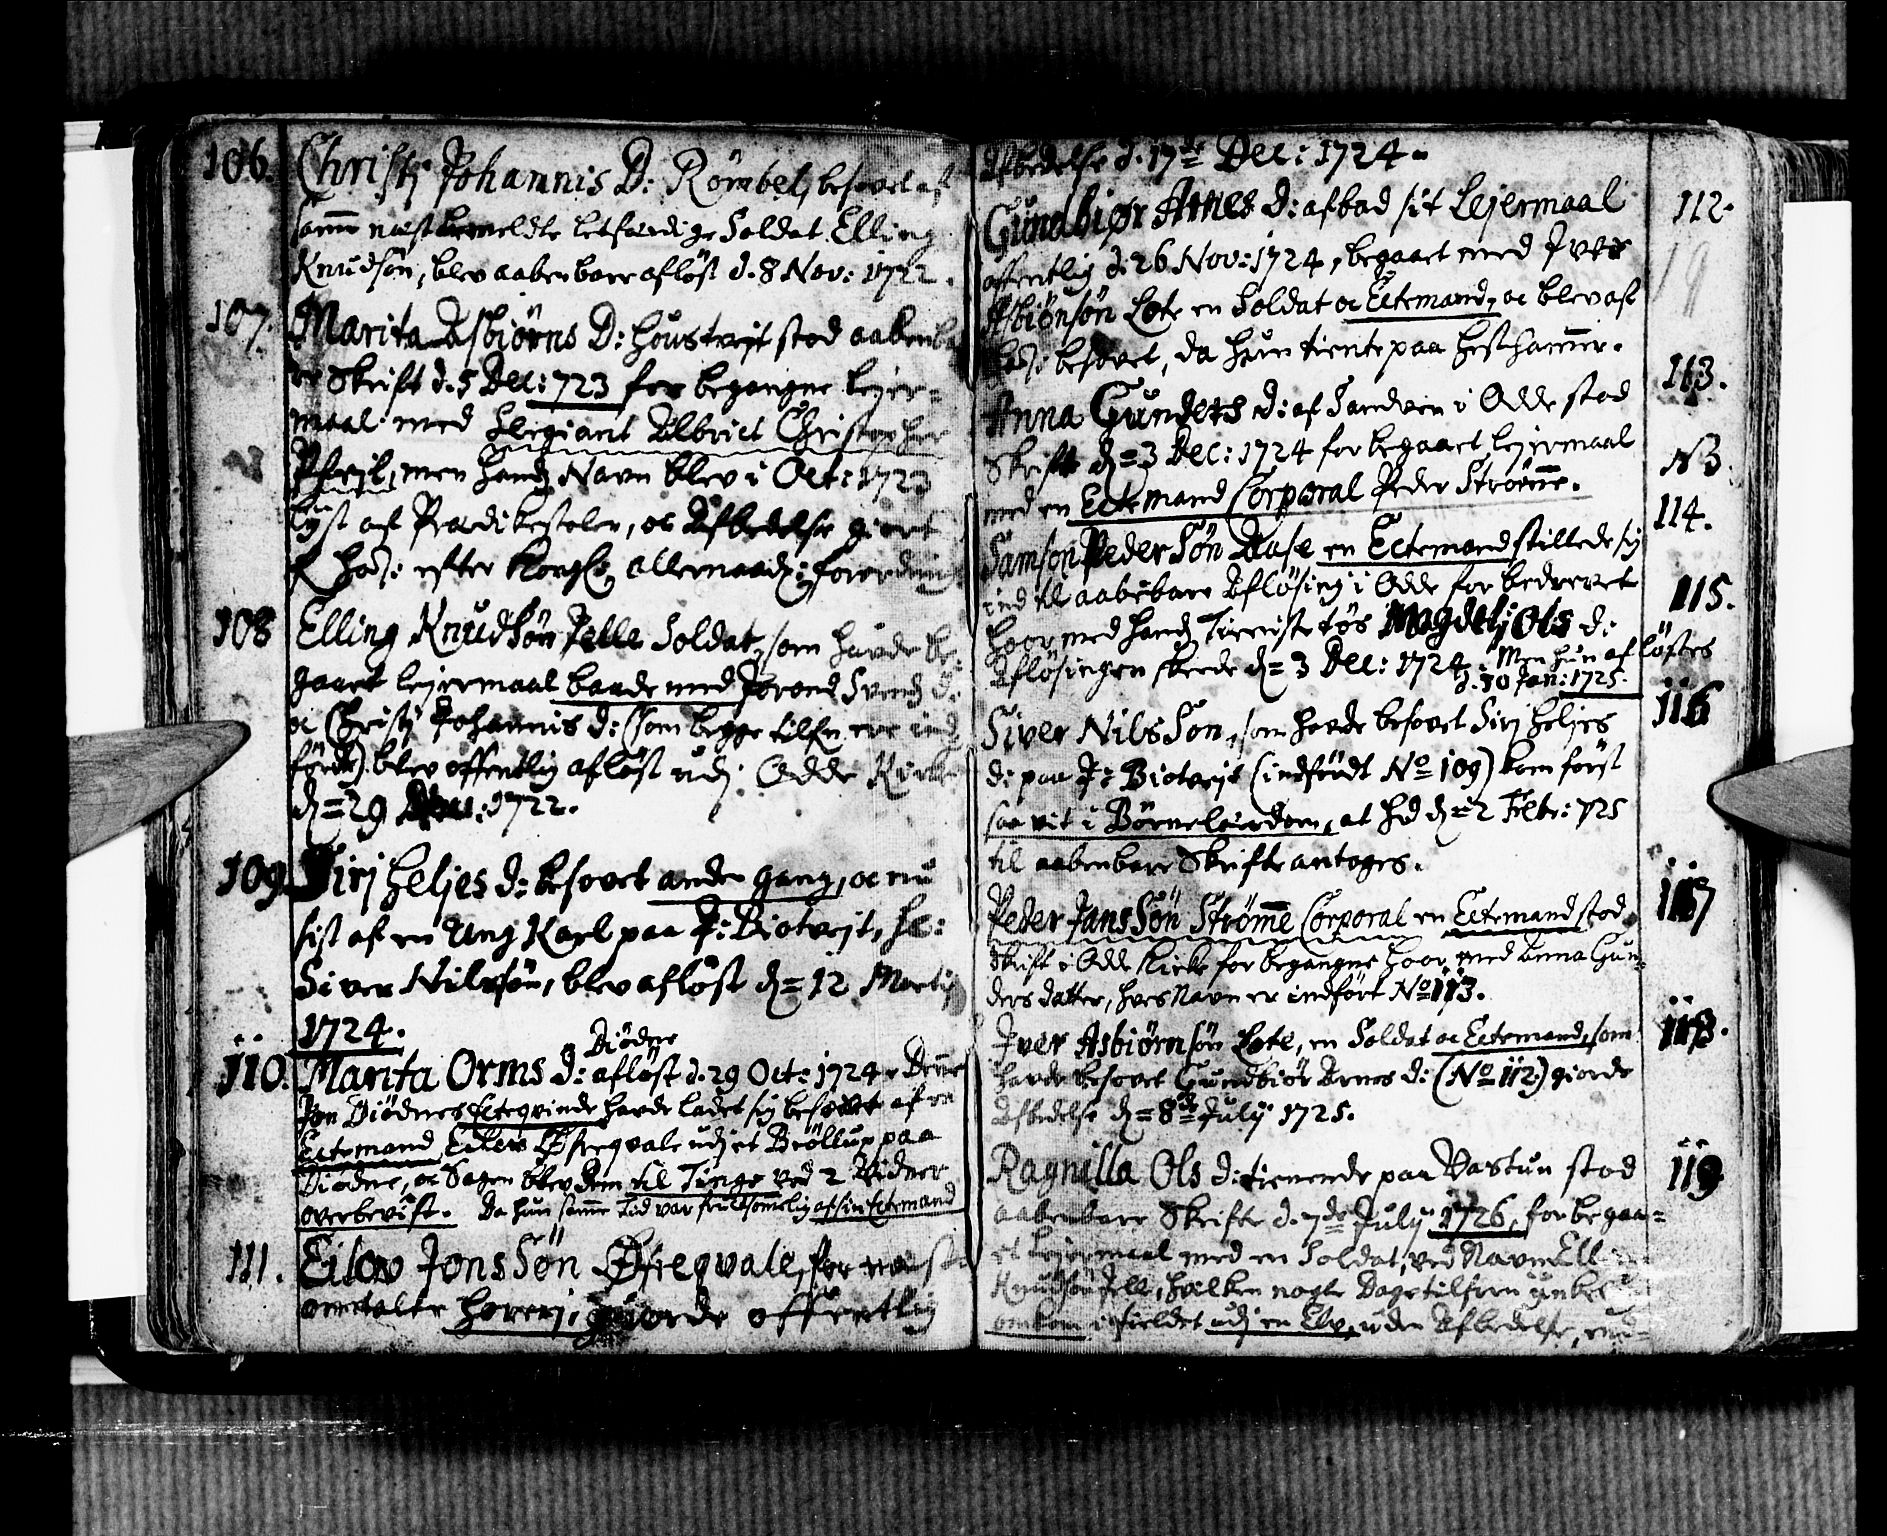 106. Christj Johannis D: Römbet, besovet af
samme næst bemeldte letfærdige Soldat Elling
Knudsön, blev aabenbare aflöst d. 8 Nov: 1722.
107. Marita Asbiörns D: Houstvejt stod aabenba
re Skrift d. 5 Dec: 723 for begangne lejer-
maal med Sergiant Albrict Christopher
Pfejl, men hands Navn blev i Oct: 1723
lyst af Prædikestolen, oc Afbedelse giort
efter Kongl: allernaad: forordning
108 Elling Knudsön Jelle Soldat, som havde be-
gaaet lejermaal baade med Jorond Svends D:
oc Christj Johannis d: (som begge tilforn ere ind-
förde) blev offentlig aflöst udj Odde Kirke
d= 29 1722.
109. Sirj Heljes d: besovet anden gang, oc nu
sist af en Ung Karl paa P: Biotvejt, he:
Siver Nilssön, blev aflöst d= 12 Martij
1724.
Diödne
110. Marita Orms d: aflöst d. 29 Oct: 1724. Denne
Jon Diödnes Ectegvinde havde ladet sig besovet af en
Ectemand, Eilev Øfregvale udj et Bröllup paa
Diödne, oc Sagen blev dem til Tinge ved 2 Vidner
overbevist. Da hun samme Tid var frugtsommelig af sin Ectemand
111. Eilov Jons Sön Øfregvale, for næst
omtalte horerj, giorde offentlig
Afbedelse d. 17de Dec: 1724.
Gundbiør Arnes d: afbad sit Lejermaal 112.
offentlig d. 26 Nov: 1724, begaaet med Iver
Asbiönsön Lote en Soldat oc Ectemand, oc blev af
besovet, da hun tiente paa Hesthammer.
Anna Gunders d: af Sandven i Odde stod 113.
Skrift d= 3 Dec: 1724 for begaaet lejermaal NB.
med en Ectemand Corporal Peder Strömme.
Samson Peder Sön Aase en Ectemand stillede sig 114.
ind til aabenbare Aflösing i Odde for bedrevet
hoor med hands Tieniste tös Magdelj Ols d: 115.
Aflösingen skeede d= 3 Dec: 1724. Men hun aflöstes
d. 10 Jan: 1725.
Siver Nils Son, som havde besovet Sirj Heljes 116
d: paa P: Biotvejt (indfördt No 109) kom först
saa vit i Börnelærdom, at hd d= 2 Febr: 725
til aabenbare Skrifte antoges.
Peder Jans Sön Strømme Corporal en Ectemand stod 117
Skrift i Odde Kirke for begangne hoor med Anna Gun-
ders datter, hves Navn er indfört No 113.
Iver Asbiörnsön Lote, en Soldat oc Ectemand, som 118.
havde besovet Gundbiör Arnes d: (No 112.) giorde
Afbedelse d= 8de Julÿ 1725.
Ragnilla Ols d: tienende paa Vastun stod 119
aabenbare Skrifte d. 7de Julÿ 1726, for begaa-
et Lejermaal med en Soldat, ved Navn Elling
Knudsön Jelle, hvilken nogle Dage tilforn ynkel
omkom i fieldet udj en Elv, uden Afbedelse, end-